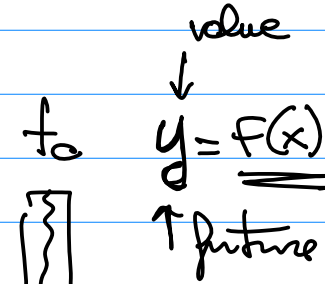 value
fo y = F(x)
future